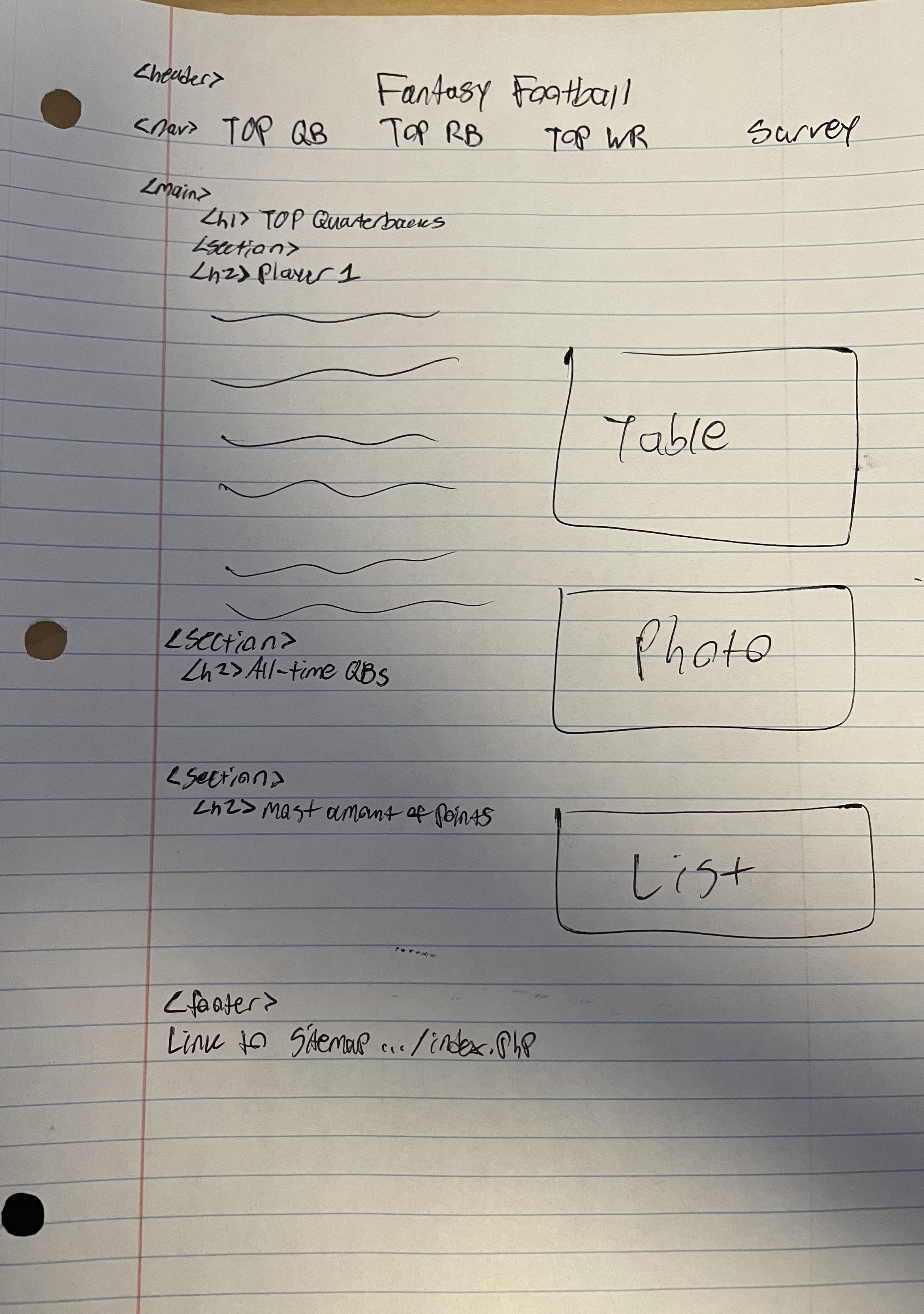 <header>
Fantasy Football
<nav> TOP QB TOP RB TOP WR Survey
<main>
<h1> TOP Quarterbacks
<section>
<h2> Player 1
Table
Photo
<section>
<h2> All-time QBs
<section>
<h2> Most amount of Points
List
<footer>
Link to Sitemap .../index.php